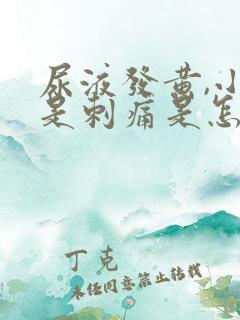 尿液發黄,小
是刺痛是怎
丁克
未经同意禁止转载